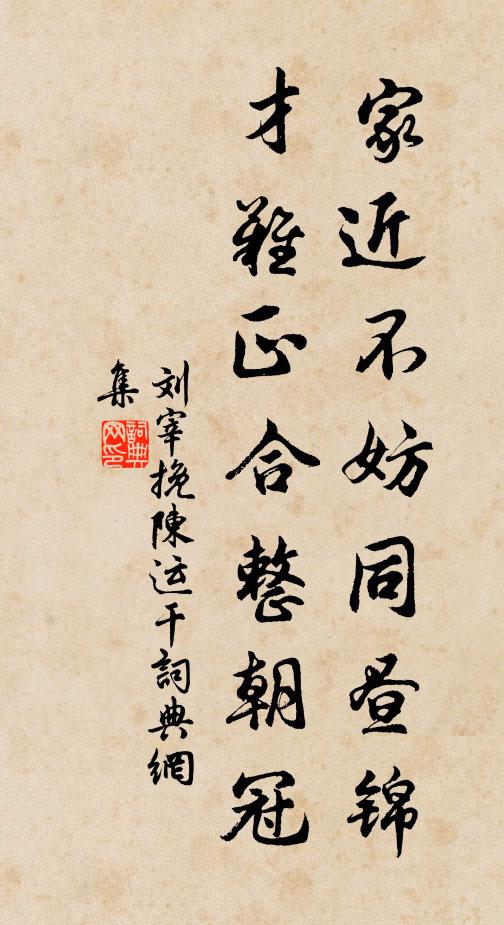 家近不妨同昼锦
才難正合整朝冠
刘宰挽陳运干詞典網
集
詞典網印